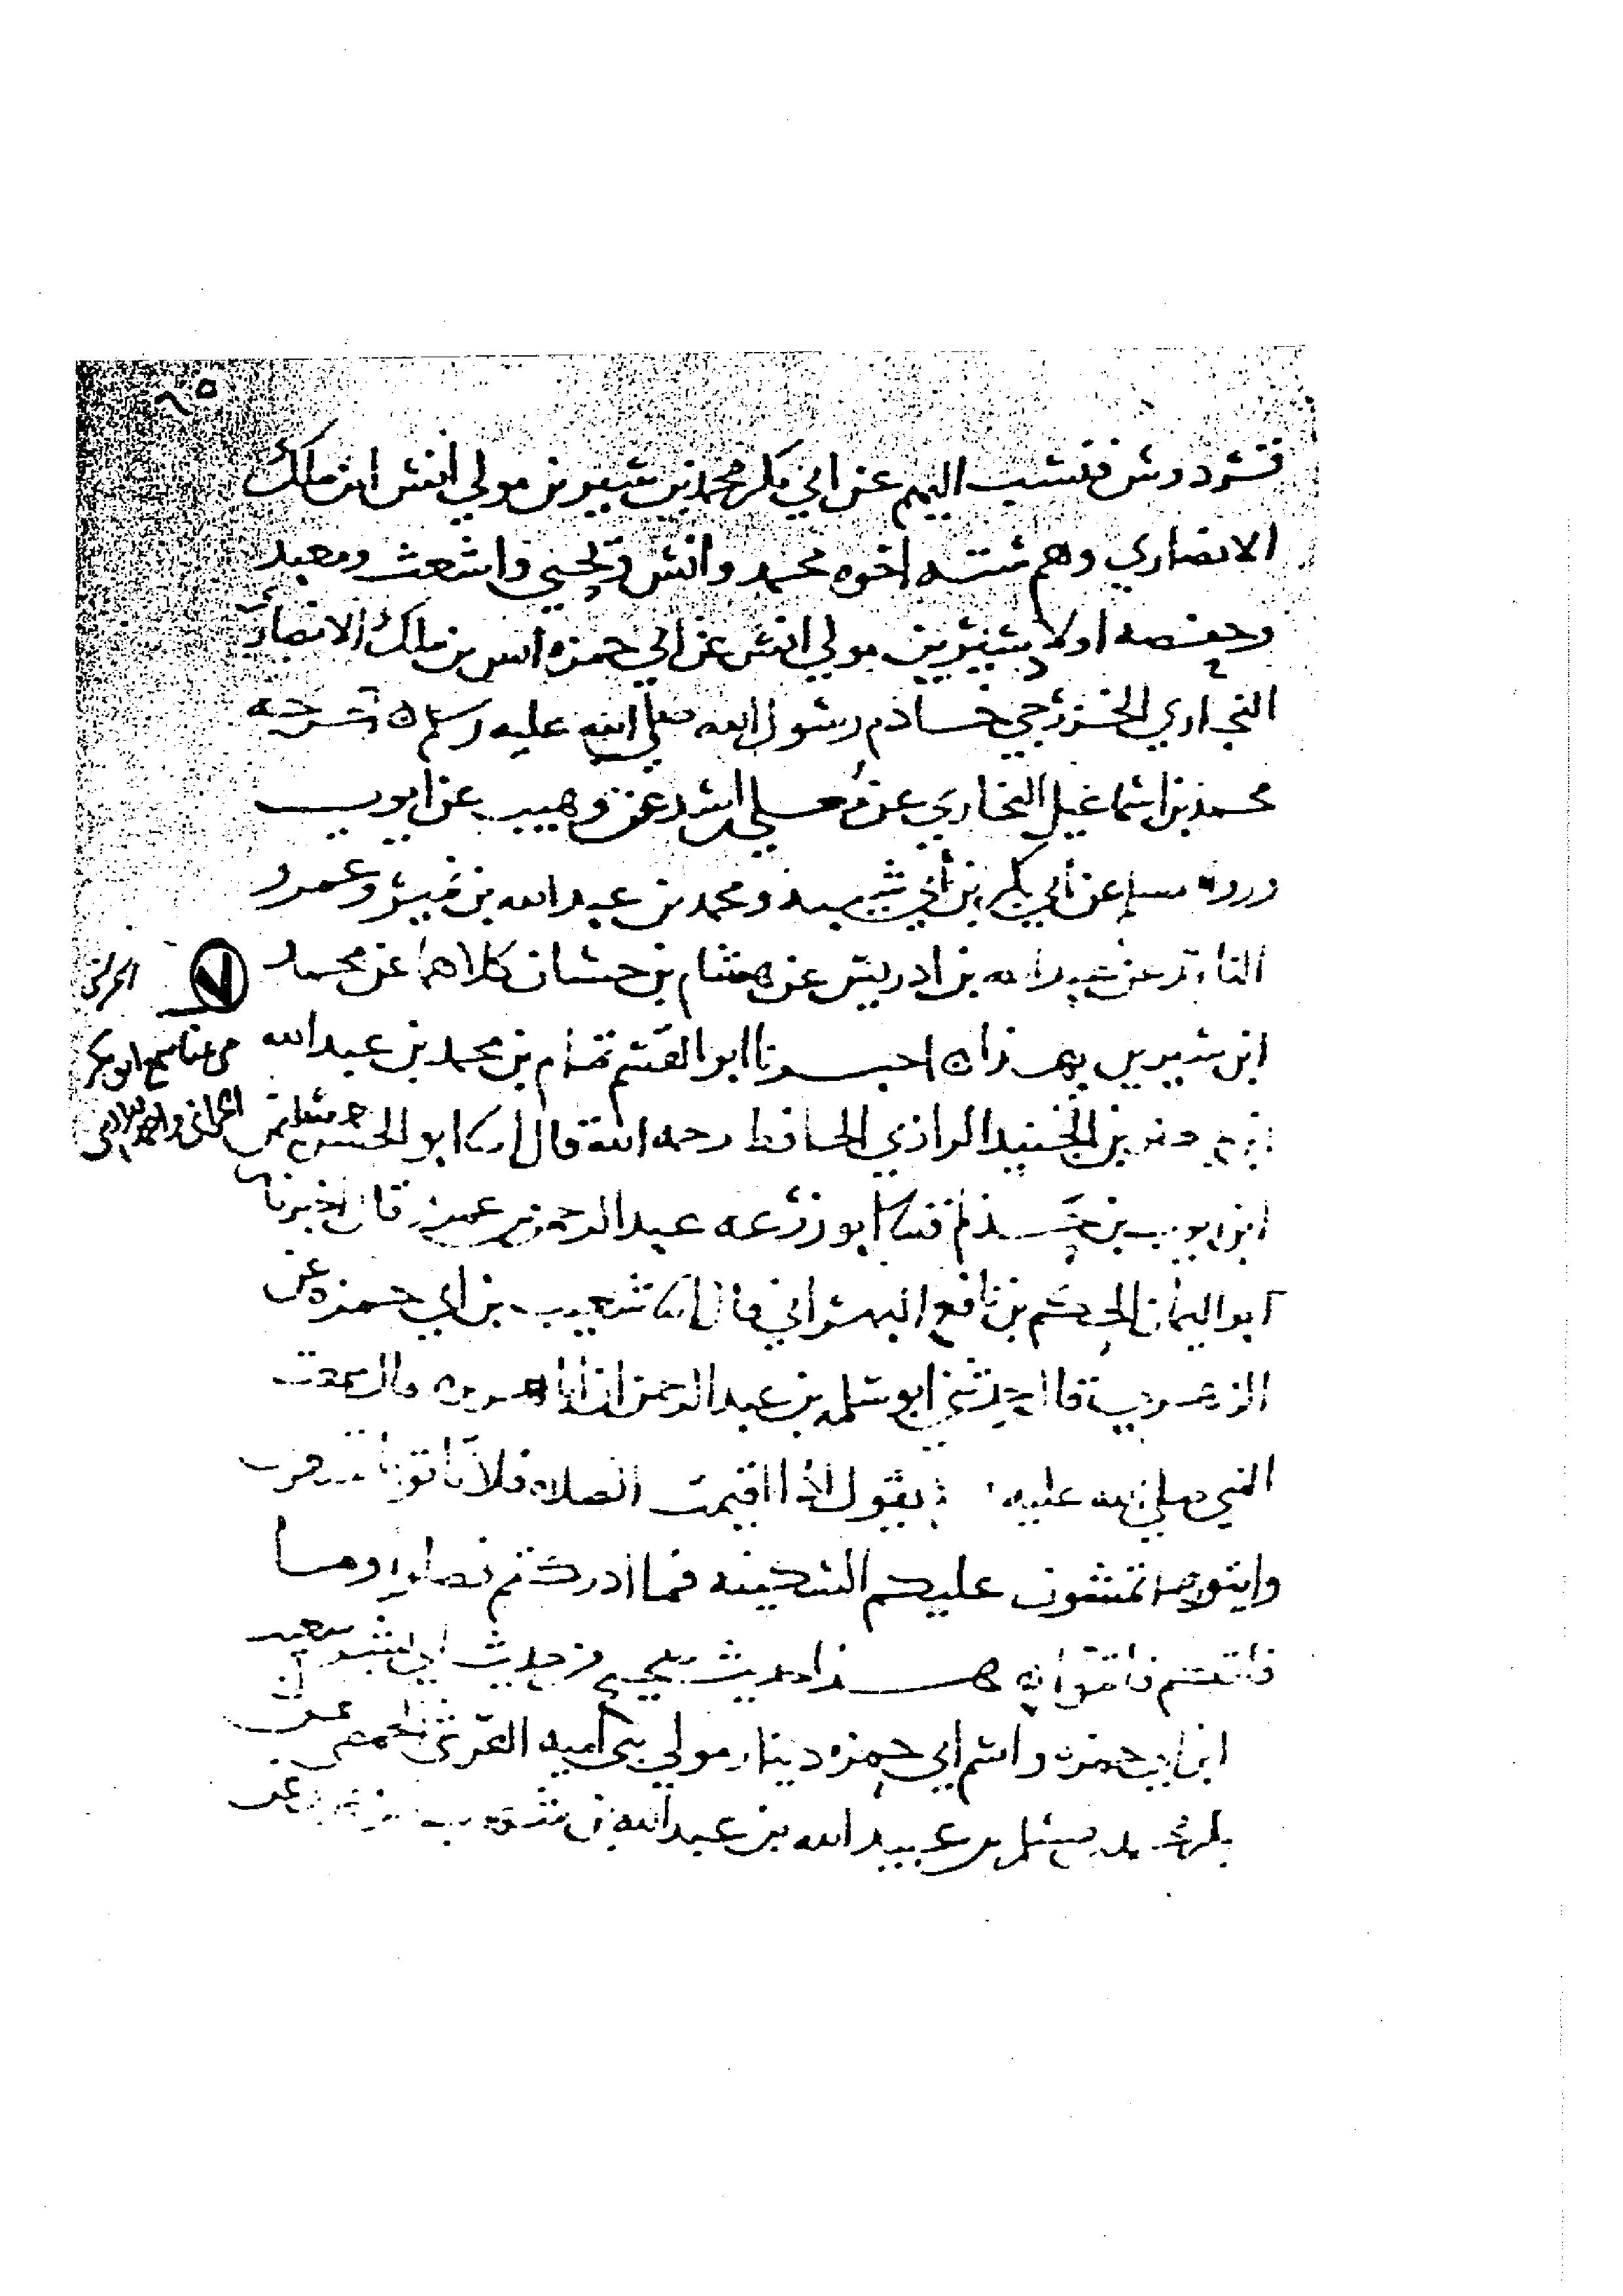 قردوس فنسب اليهم عن ابي بكر محمد بن سيرين مولي انس ابن ملك
الانصاري وهم ستة اخوه محمد وانس ويحيي واشعث ومعبد
وحفصه اولاد سيرين مولي انس عن ابي حمزه انس بن ملك الانصاري
النجاري الخزرجي خادم رسول الله صلي الله عليه وسلم ٥ اخرجه
محمد بن اسماعيل البخاري عن معلي اسد عن وهيب عن ايوب
ورواه مسلم عن ابي بكر بن ابي شيبه ومحمد بن عبد الله بن نمير وعمرو
الناقد عن عبد الله بن ادريس عن هشام بن حسان كلاهما عن محمد
ابن سيرين بهذا ٥ اخبرنا ابو القسم تمام بن محمد بن عبد الله
بن جعفر بن الجنيد الرازي الحافظ رحمه الله قال انا ابو الحسن
ابن ايوب بن حذلم قثنا ابو زرعه عبد الرحمن بن عمرو قال اخبرنا
ابو اليمان الحكم بن نافع البهراني قال انا شعيب بن ابي حمزه عن
الزهري قال حدثني ابو سلمه بن عبد الرحمن ان ابا هريره قال سمعت
النبي صلي الله عليه يقول اذا اقيمت الصلاه فلا تاتوها تسعون
وايتوها تمشون عليكم السكينه فما ادركتم فصلوا وما
فاتكم فاتموا ٥ هذا حديث صحيح من حديث ابي بشر شعيب
ابن ابي حمزه واسم ابي حمزه دينار مولي بني اميه القرشي الحمصي عن
ابي بكر محمد بن مسلم بن عبيد الله بن عبد الله بن شهاب